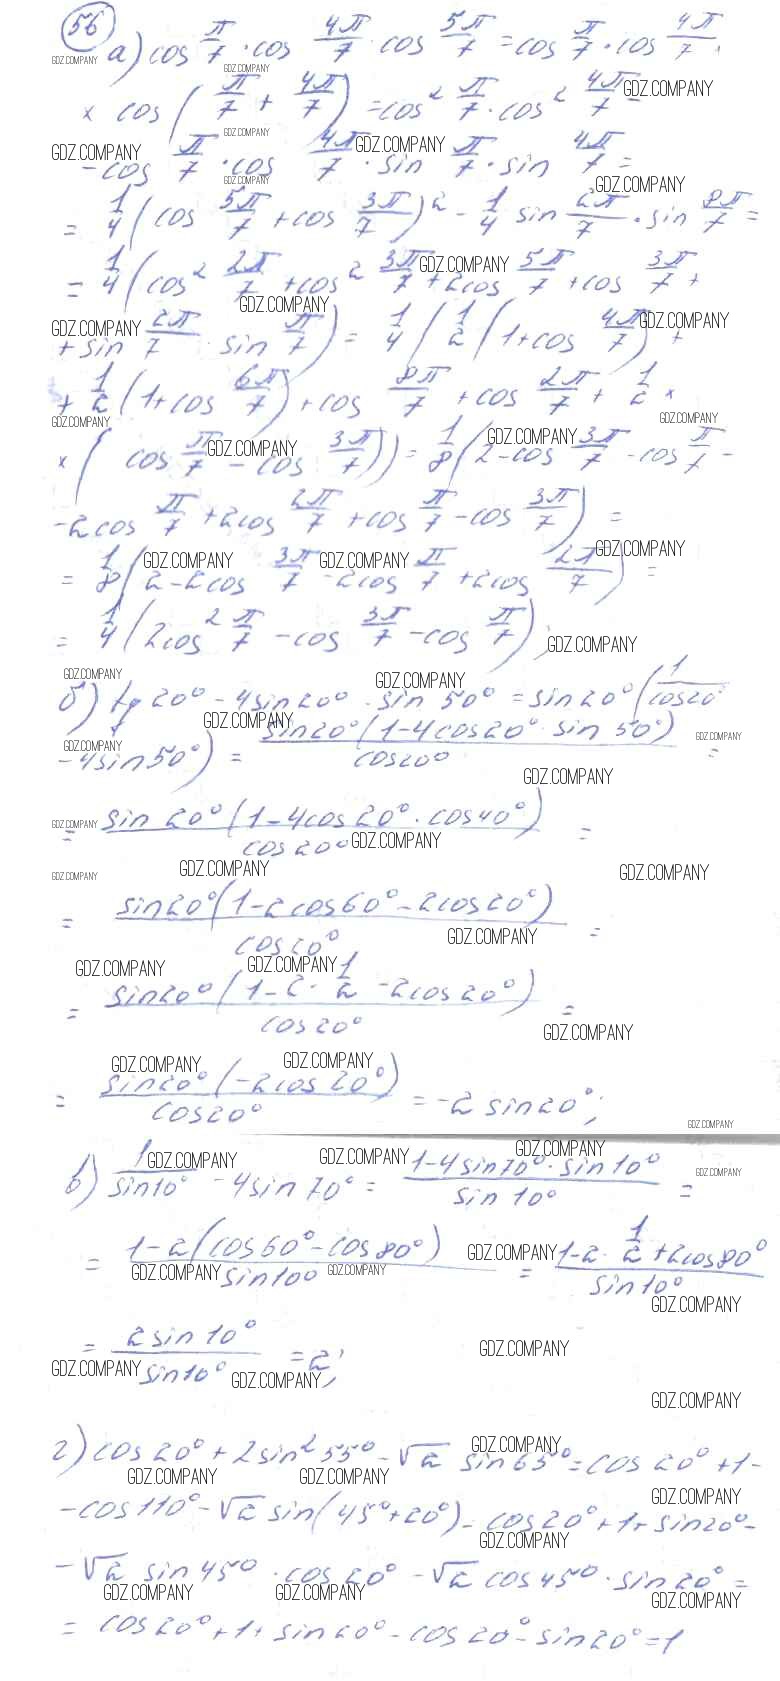 56
а) cos π/7 · cos 4π/7 · cos 5π/7 = cos π/7 · cos 4π/7 ·
× cos (π/7 + 4π/7) = cos² π/7 · cos² 4π/7 -
- cos π/7 · cos 4π/7 · sin π/7 · sin 4π/7 =
= 1/4 (cos 5π/7 + cos 3π/7)² - 1/4 sin 2π/7 · sin 8π/7 =
= 1/4 (cos² 2π/7 + cos² 3π/7 + 2cos 5π/7 + cos 3π/7 +
+ sin 2π/7 · sin π/7) = 1/4 (1/2 (1 + cos 4π/7) +
+ 1/2 (1 + cos 6π/7) + cos 8π/7 + cos 2π/7 + 1/2 ×
× (cos π/7 - cos 3π/7)) = 1/8 (2 - cos 3π/7 - cos π/7 -
- 2cos π/7 + 2cos 2π/7 + cos π/7 - cos 3π/7) =
= 1/8 (2 - 2cos 3π/7 - 2cos π/7 + 2cos 2π/7) =
= 1/4 (2cos² π/7 - cos 3π/7 - cos π/7);
б) tg 20° - 4sin 20° · sin 50° = sin 20° (1/cos 20°
- 4sin 50°) = sin 20° (1 - 4cos 20° · sin 50°)/cos 20° =
= sin 20° (1 - 4cos 20° · cos 40°)/cos 20° =
= sin 20° (1 - 2cos 60° - 2cos 20°)/cos 20° =
= sin 20° (1 - 2 · 1/2 - 2cos 20°)/cos 20° =
= sin 20° (-2cos 20°)/cos 20° = -2 sin 20°;
в) 1/sin 10° - 4sin 70° = 1 - 4sin 70° · sin 10°/sin 10° =
= 1 - 2(cos 60° - cos 80°)/sin 10° = 1 - 2 · 1/2 + 2cos 80°/sin 10°
= 2 sin 10°/sin 10° = 2;
г) cos 20° + 2sin² 55° - √2 sin 65° = cos 20° + 1 -
- cos 110° - √2 sin (45° + 20°) - cos 20° + 1 + sin 20° -
- √2 sin 45° · cos 20° - √2 cos 45° · sin 20° =
= cos 20° + 1 + sin 20° - cos 20° - sin 20° = 1